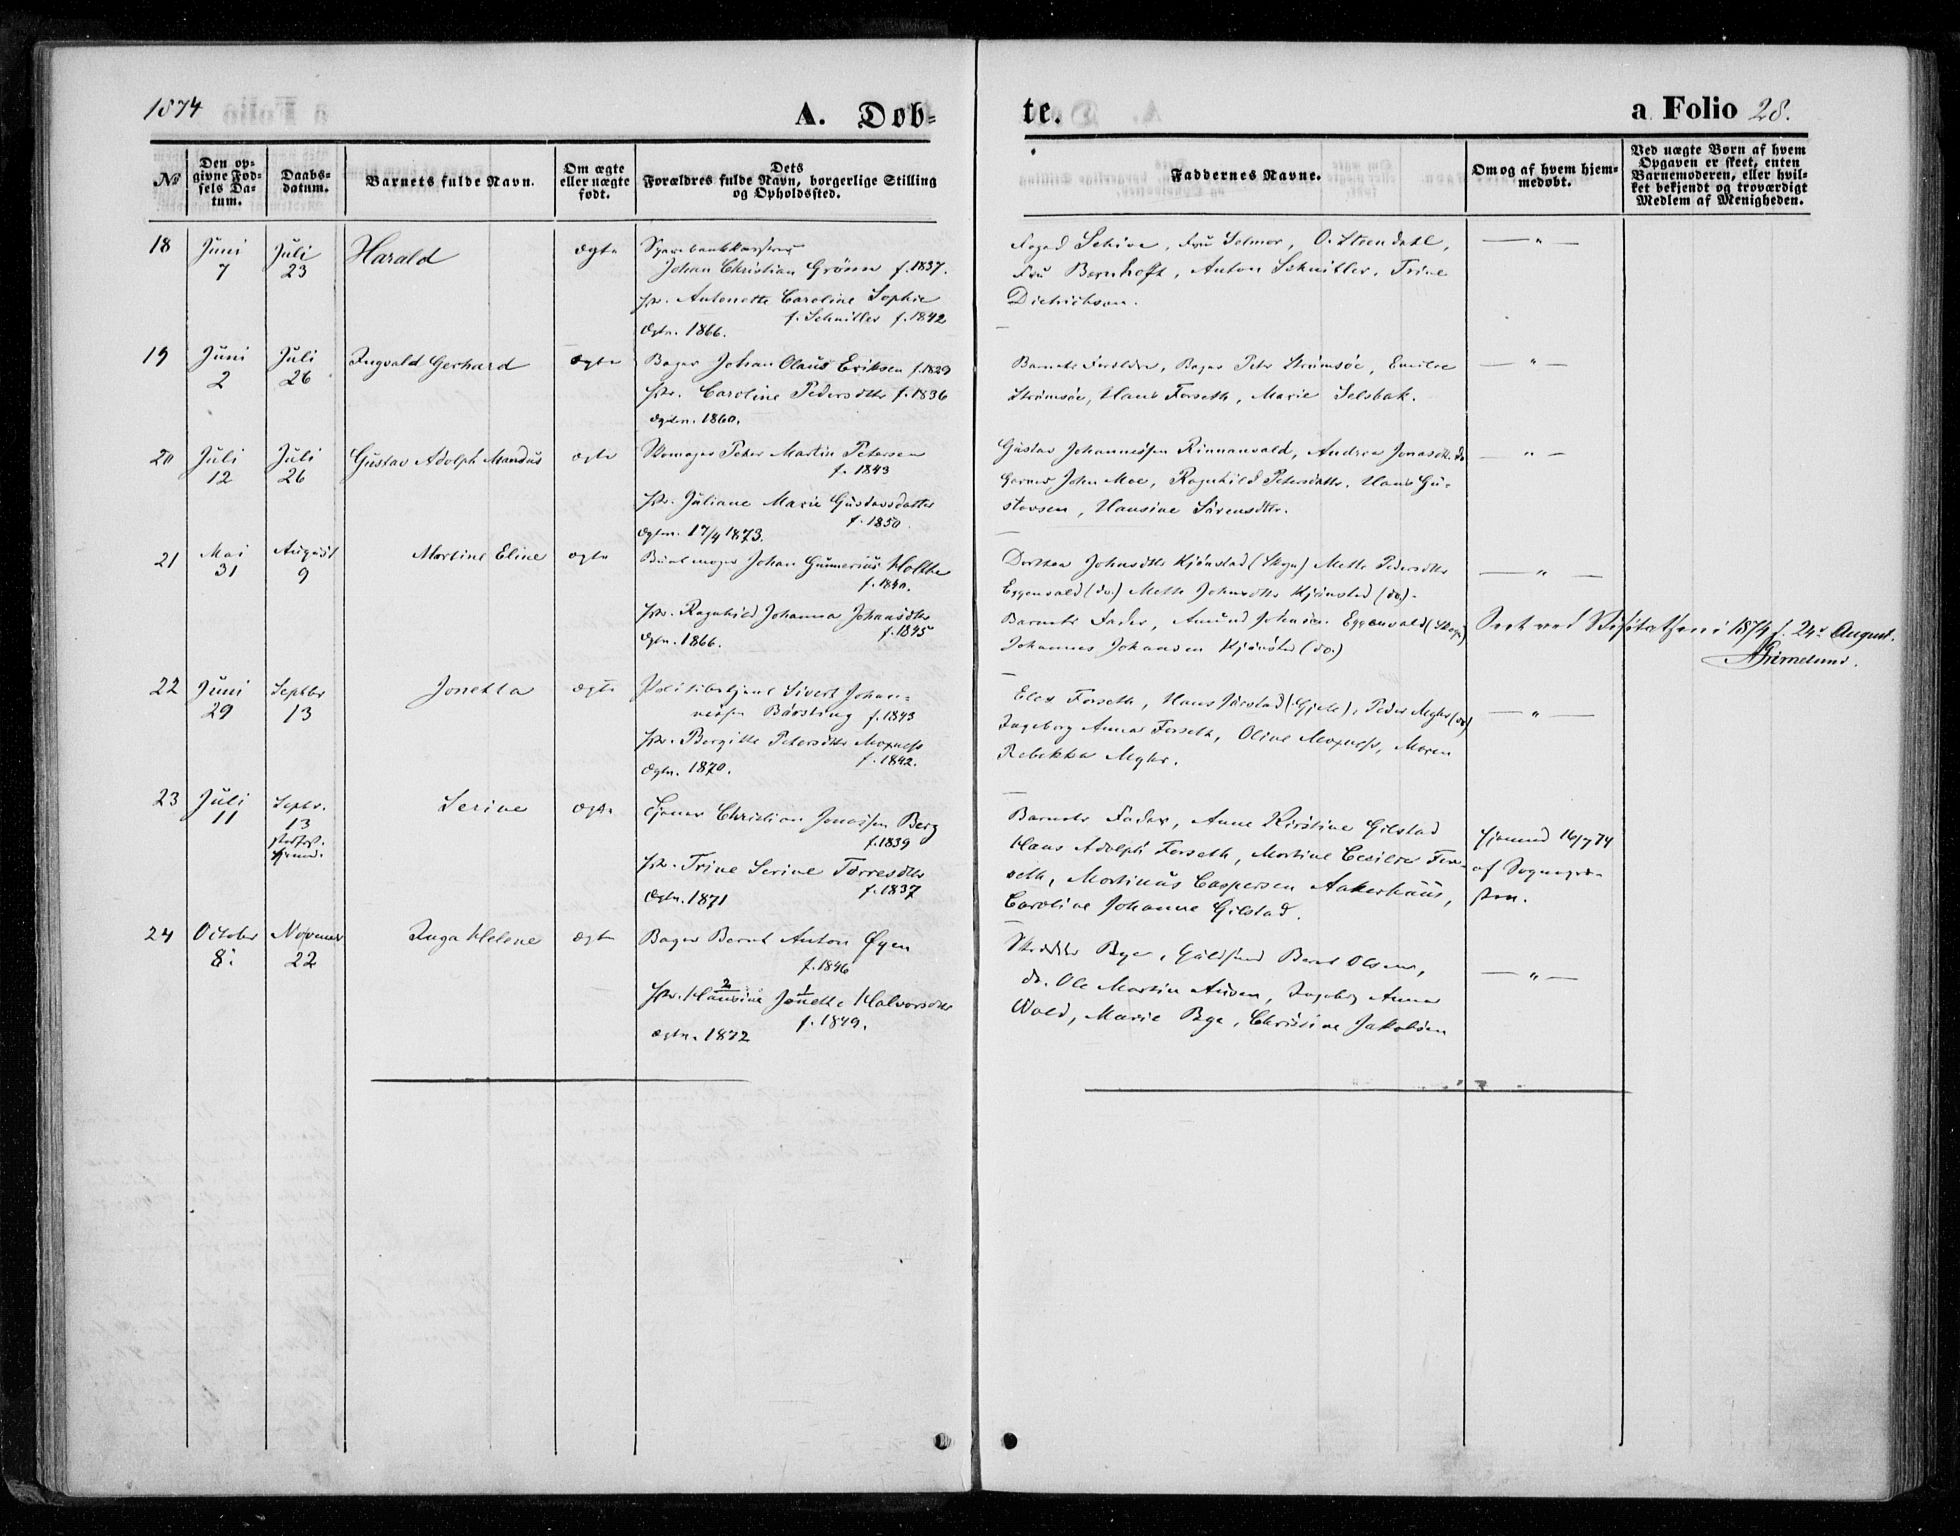 1874
A. Døb-
te.
a Folio 28.
No
Den op-
givne Fød-
sels Da-
tum.
Daabs-
datum.
Barnets fulde Navn.
Om ægte
eller uægte
født.
Dets
Forældres fulde Navn, borgerlige Stilling
og Opholdssted.
Faddernes Navne.
Om og af hvem hjem-
medøbt.
Ved uægte Børn af hvem
Opgaven er skeet, enten
Barnemoderen, eller hvil-
ket bekjendt og troværdigt
Medlem af Menigheden.
18
Juni
7
Juli
23
Harald
ægte
Sparebankkasserer
Johan Christian Grönn f. 1837.
Antonette Caroline Sophie
f. Schnitler f. 1842
Ægtev. 1866.
Foged Schive, Fru Selmer, O. Steendahl,
Fru Bernhoft, Anton Schnitler, Trine
Dietrichson.
— " —
19
Juni
2
Juli
26
Ingvald Gerhard
ægte
Bager Johan Olaus Eriksen f. 1829
Caroline Pedersdtr f. 1836
Ægtev. 1860.
Barnets Forældre, Bager Peter Strömsöe, Emilie
Strömsöe, Hans Forseth, Marie Selsbak.
— " —
20
Juli
12
Juli
26
Gustav Adolph Mandus
ægte
Skomager Peter Martin Petersen
f. 1843
Juliane Marie Gustavsdatter
f. 1850.
Ægtev. 17/4 1873.
Gustav Johannessen Rinnanvald, Andrea Jonasdtr. do
Garver John Moe, Ragnhild Petersdatter, Hans Gu-
stavsen, Hansine Sörensdtr.
— " —
21
Mai
31
August
9
Martine Eline
ægte
Buntmager Johan Gunnerius Holthe
f. 1840.
Ragnhild Johanna Johansdtr
f. 1845
Ægtev. 1866.
Dorthea Johnsdtr Kjönstad (Skogn) Mette Pedersdtr
Eggenvald (do.) Mette Johnsdtr Kjönstad (do).
Barnets Fader, Amund Johnsen Eggenvald (Skogn)
Johannes Johansen Kjönstad (do.)
— " —
Seet ved Visitatsen i 1874 d. 24de August.
Grimelund.
22
Juni
29
Septbr
13
Jonetta
ægte
Politibetjent Sivert Johan-
nesen Börsting f. 1843
Bergitte Petersdtr Moxness
f. 1842.
Ægtev. 1870.
Forseth, Hans (Gjele), Peder Mghr (do)
Ingeborg Anna Forseth, Oline Moxness, Maren
Rebekka Mghr.
— " —
23
Juli
11
Septbr.
13
stadfest.
hjemmed.
Serine
ægte
Christian Jonassen Berg
f. 1839
Trine Serine Torresdtr
f. 1837
Ægtev. 1871
Barnets Fader, Anne Kirstine Gilstad
Hans Adolph Forseth, Martine Cecilie For-
seth, Martinus Caspersen Aakerhuus,
Caroline Johanne Gilstad.
hjemmed 16/7 74
af Sognepre-
sten.
24
October
8.
November
22
Inga Helene
ægte
Bager Bernt Anton Øyen
f. 1846
2 1
Hansine Jonette Halvorsdtr
f. 1849.
Ægtev. 1872
Skrædder Bye, Guldsmed Bernt Olsen,
do. Ole Martin Auben, Ingeborg Anna
Wold, Marie Bye, Christine Jakobsen
— " —